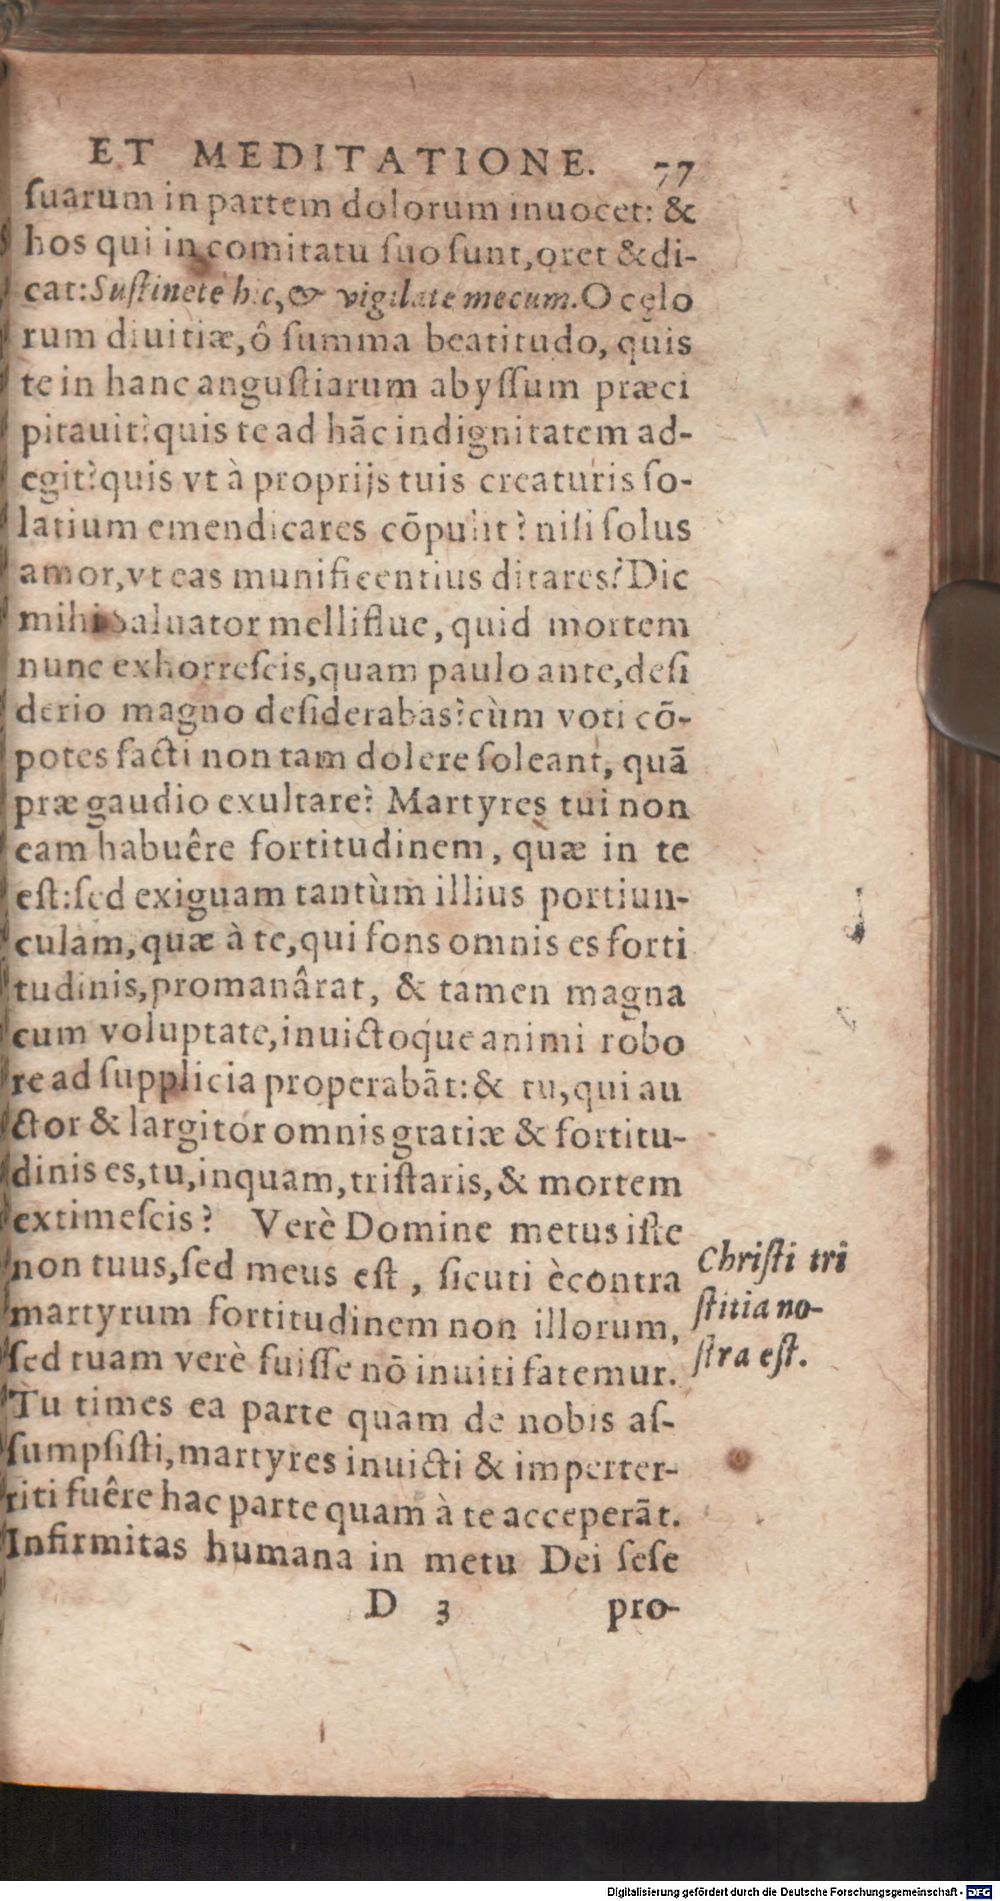 ET MEDITATIONE. 77
suarum in partem dolorum inuocet: &
hos qui in comitatu suo sunt, oret & di-
cat: Sustinete hic, & vigilate mecum. O cęlo
rum diuitiæ, ô summa beatitudo, quis
te in hanc angustiarum abyssum præci
pitauit? quis te ad hãc indignitatem ad-
egit? quis vt à proprijs tuis creaturis so-
latium emendicares cõpulit? nisi solus
amor, vt eas munificentius ditares? Dic
mihi Saluator melliflue, quid mortem
nunc exhorrescis, quam paulo ante, desi
derio magno desiderabas? cùm voti cõ-
potes facti non tam dolere soleant, quã
præ gaudio exultare? Martyres tui non
eam habuêre fortitudinem, quæ in te
est: sed exiguam tantùm illius portiun-
culam, quæ à te, qui fons omnis es forti
tudinis, promanârat, & tamen magna
cum voluptate, inuictoque animi robo
re ad supplicia properabãt: & tu, qui au
ctor & largitor omnis gratiæ & fortitu-
dinis es, tu, inquam, tristaris, & mortem
extimescis? Verè Domine metus iste
non tuus, sed meus est, sicuti ècontra
martyrum fortitudinem non illorum,
sed tuam verè fuisse nõ inuiti fatemur.
Tu times ea parte quam de nobis as-
sumpsisti, martyres inuicti & imperter-
riti fuêre hac parte quam à te acceperãt.
Infirmitas humana in metu Dei sese
D 3 pro-
Christi tri
stitia no-
stra est.
Digitalisierung gefördert durch die Deutsche Forschungsgemeinschaft - DFG